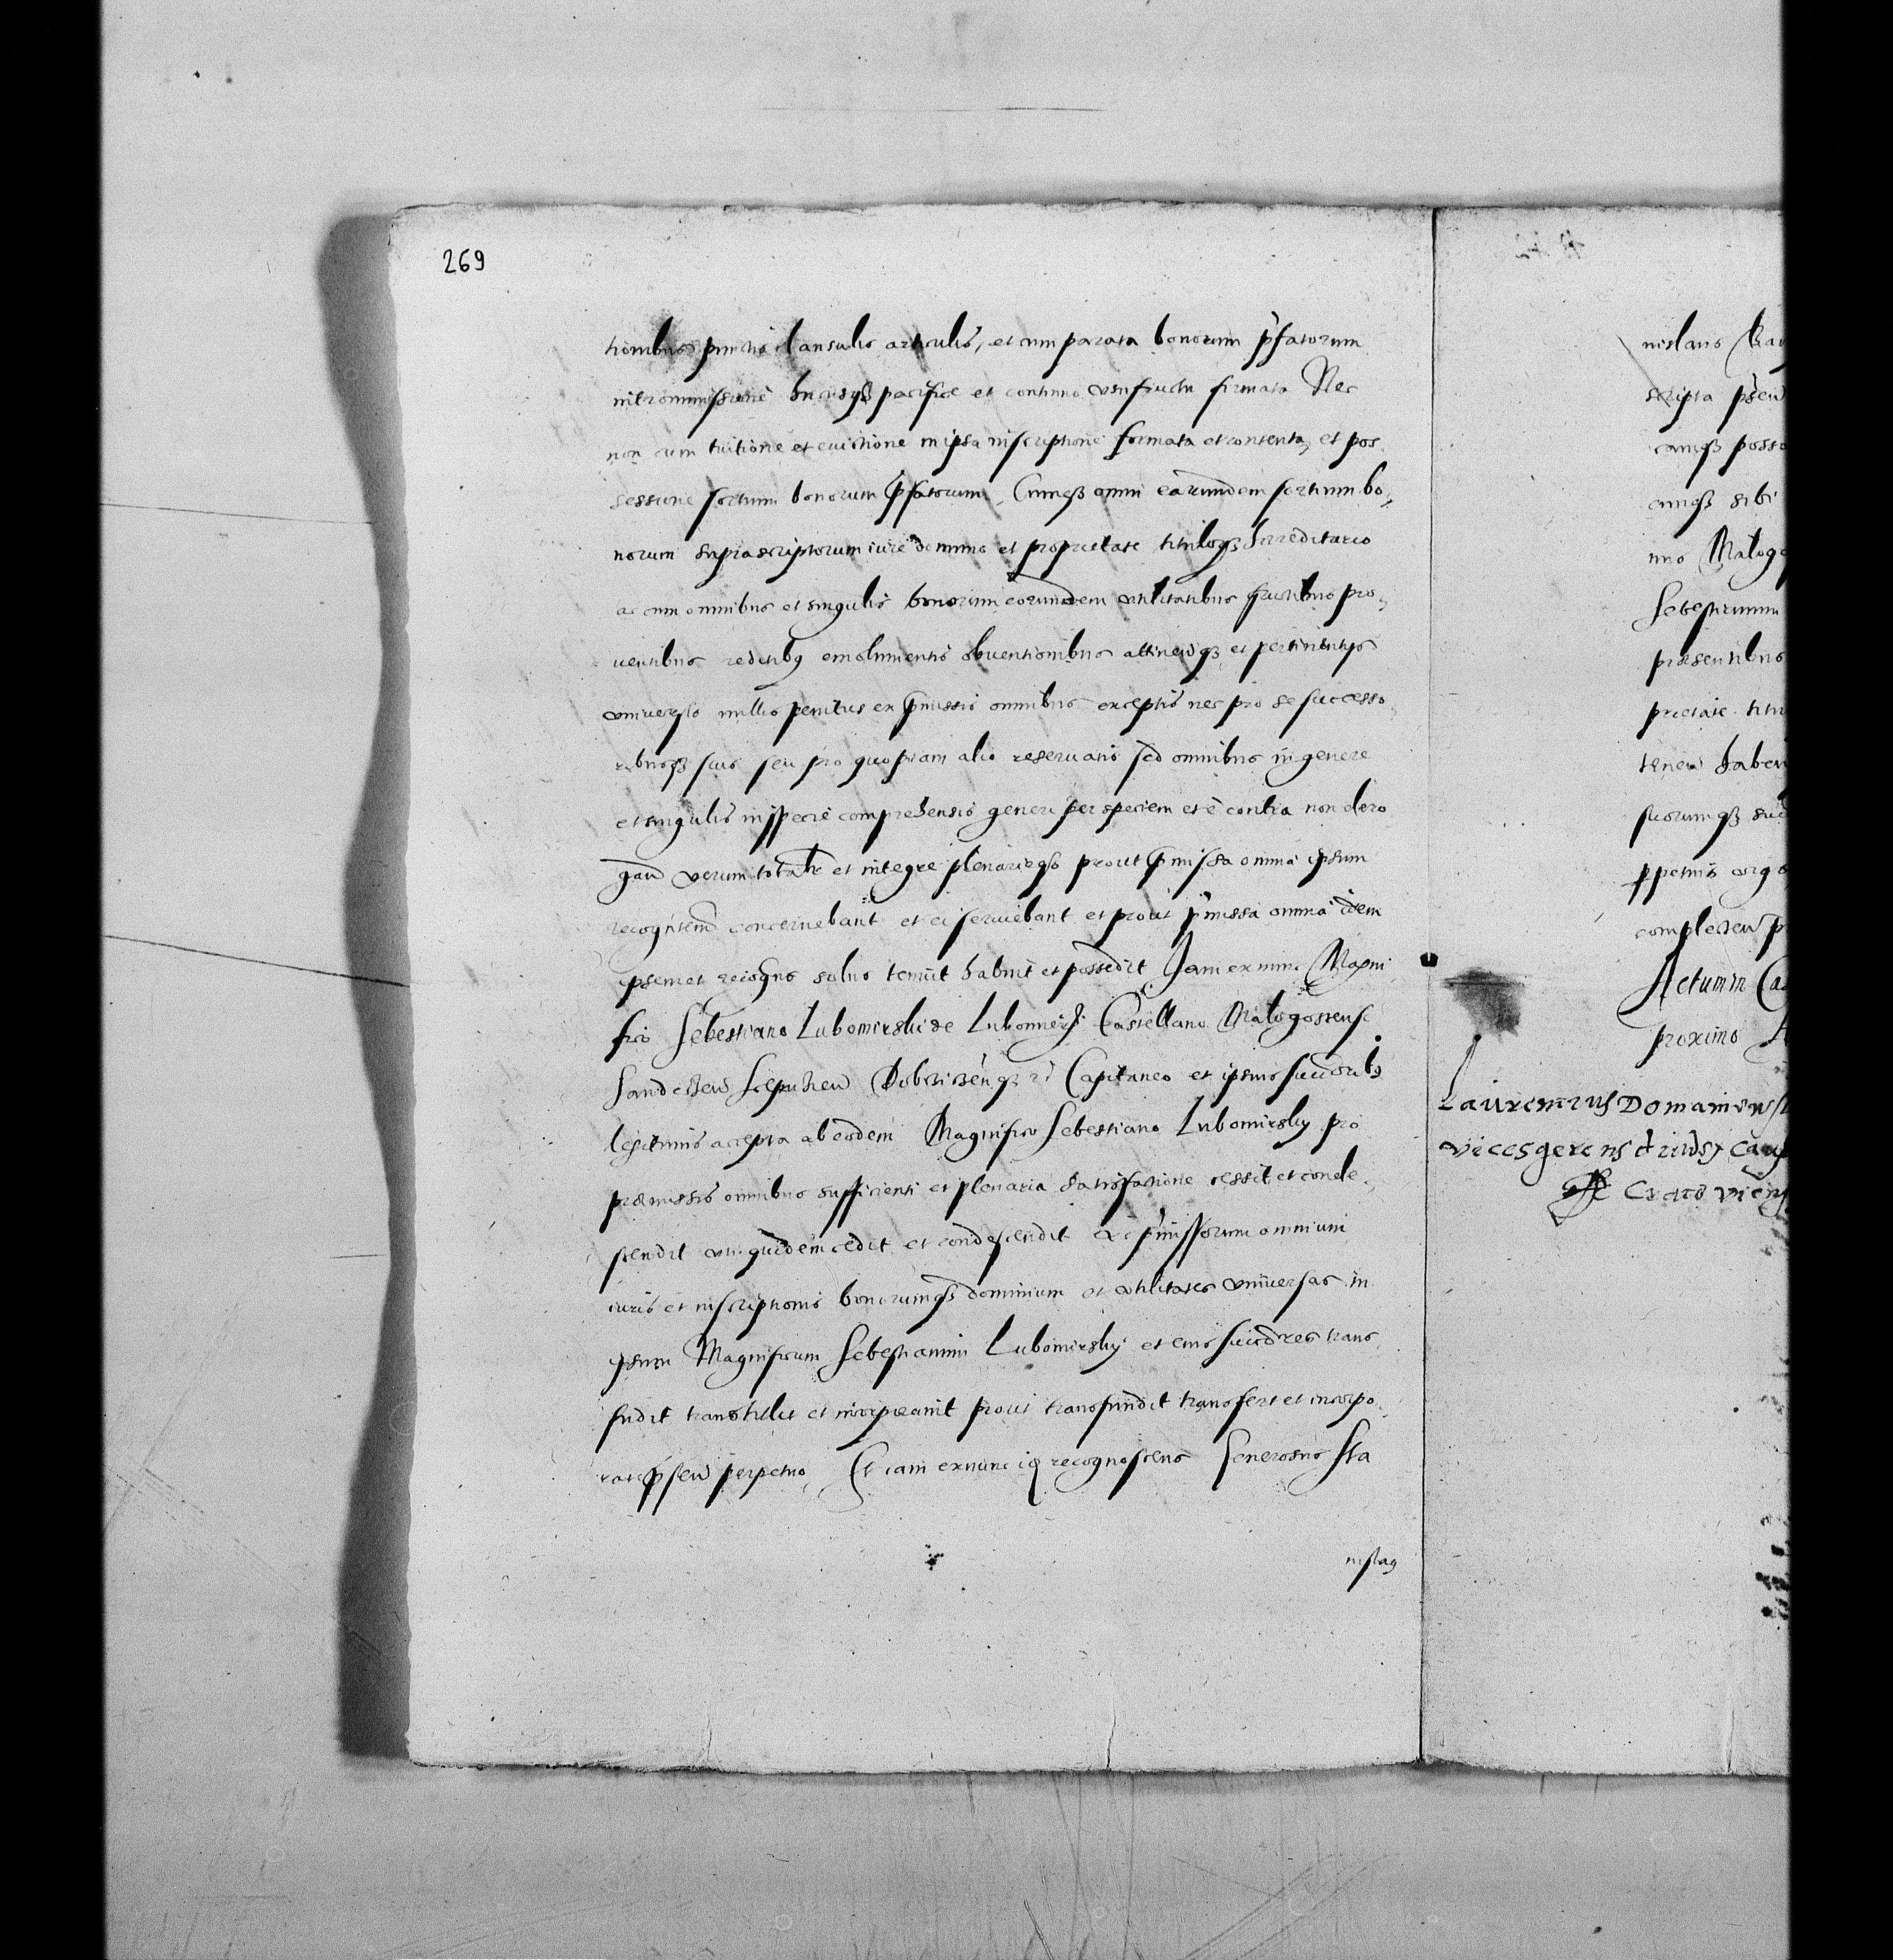 269
tionibus punctis clausulis articulis, et cum parata bonorum pfatorum
intromissione hucusqz pacifice et continuo usufructu firmata Nec
non cum tuitione et evictione in ipsa inscriptione formata et contenta, et pos
sessione sortium bonorum pfatorum, Cumqz omni earundem sortium bo,
norum suprascriptorum iure dominio et proprietate tituloqz hæreditario
ac cum omnibus et singulis bonorum eorundem utilitatibus fructibus pro,
ventibus reditibq emolumentis obventionibus attinen qz et pertinentijs
universis nullis penitus ex pmissis omnibus exceptis nec pro se successo
ribusqz suis seu pro quopiam alio reservatis sed omnibus in genere
et singulis in specie comprehensis generi per speciem et è contra non dero
gan verum totalr et integre plenarieqz prout pmissa omnia ipsum
recogntem concernebant et ei serviebant et prout pmissa omnia idem
ipsemet recogns solus tenuit habuit et possedit Jam ex nunc Magni
fico Sebestiano Lubomirski de Lubomierz Castellano Malogostensi
Sandecien Scepusien Dobczicen qz r Capitaneo et ipsius succoribq
legitimis accepta ab eodem Magnifico Sebestiano Lubomirsky pro
præmissis omnibus sufficienti et plenaria satisfactione cessit et conde
scendit uti quidem cedit et condescendit Ac pmissorum omnium
iuris et inscriptionis bonorumqz dominium et utilitates universas in
ipsum Magnificum Sebestianum Lubomirsky et eius succores trans
fudit transtulit et incorporavit prout transfundit transfert et incorpo,
rat psen perpetuo, Et iam ex nunc iq recognoscens Generosus Sta
nislaq
nislao
scripta psen
camqz posse
cumqz sibi
nno Malogo
Sebestianum
præsentibus
prietate titu
tenen haben
suorumqz suc
ppetuis
complecten p
Actum in Ca
proximo
Laurentius Domaniews
vicesgerens
Cracovien